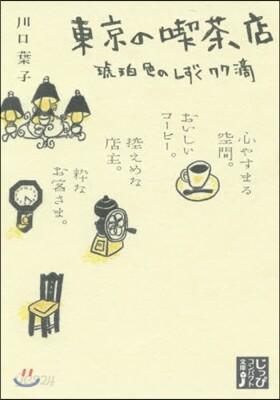 東京の喫茶店
琥珀色のしずく77滴
川口葉子
心やすまる
空間。
おいしい
コーヒー。
控えめな
店主。
粋な
お客さま。
じっぴ
コンパクト
文庫
yes24